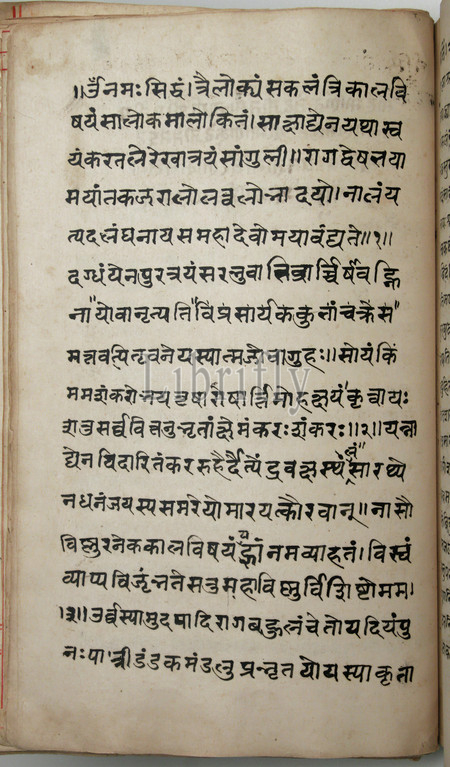 ॥ॐनमःसिद्धं।त्रैलोक्यंसकलंत्रिकालवि
षयंसालोकमालोकितं।साक्षाद्येनयथास्व
यंकरतलेरेखात्रयंसांगुली॥रागद्वेषभया
मयांतकजरालोलत्वलोभादयो।नालंय
त्पदलंघनायसमहादेवोमयावंद्यते॥१॥
दग्धंयेनपुरत्रयंसरभुवातिव्रार्च्चिषंवह्नि
ना"योवानृत्यतिविप्रसार्यककुभांचक्रेस"
मत्रवत्पितृवनेयस्यात्मजोवागुहः॥सोयंकिं
ममशंकरोभयतृषारोषार्त्तिमोहक्षयंकृत्वायः
शतुसर्व्ववित्तनुभृतांक्षेमंकरःशंकरः॥२॥यत्ना
द्येनविदारितंकररुहैर्दैत्येंद्रवक्षस्थलंसारथ्ये
नधनंजयस्यसमरेयोमारयत्कौरवान्॥नासौ
विष्णुरनेककालविषयंयद्ज्ञानमव्याहतं।विस्वं
व्याप्यविजृंभतेसतुमहाविष्णुर्विशिष्टोमम।
।३॥उर्वस्यामुदपादिरागबहुलंचेतोयदियंपु
नःपात्रीडंडकमंडलुप्रभृतयोयस्याकृता
Librifly